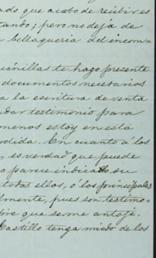 ado que acabo de recibir es
tando; pero no deja de
bellaqueria del incom-
cinillas te hago presente
documentos necesarios
a la escritura de venta
dar testimonio para
menos estoy en esta
edida. En cuanto á los
, es verdad que puede
o parece indicado su
todas ellos, ó los principales
lmente, pues son testimo-
bre que se me antoje.
Castillo tenga miedo de los